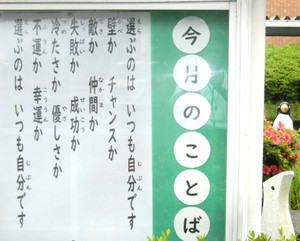 今月のことば
選ぶのは いつも自分です
壁か チャンスか
敵か 仲間か
失敗か 成功か
冷たさか 優しさか
不運か 幸運か
選ぶのは いつも自分です